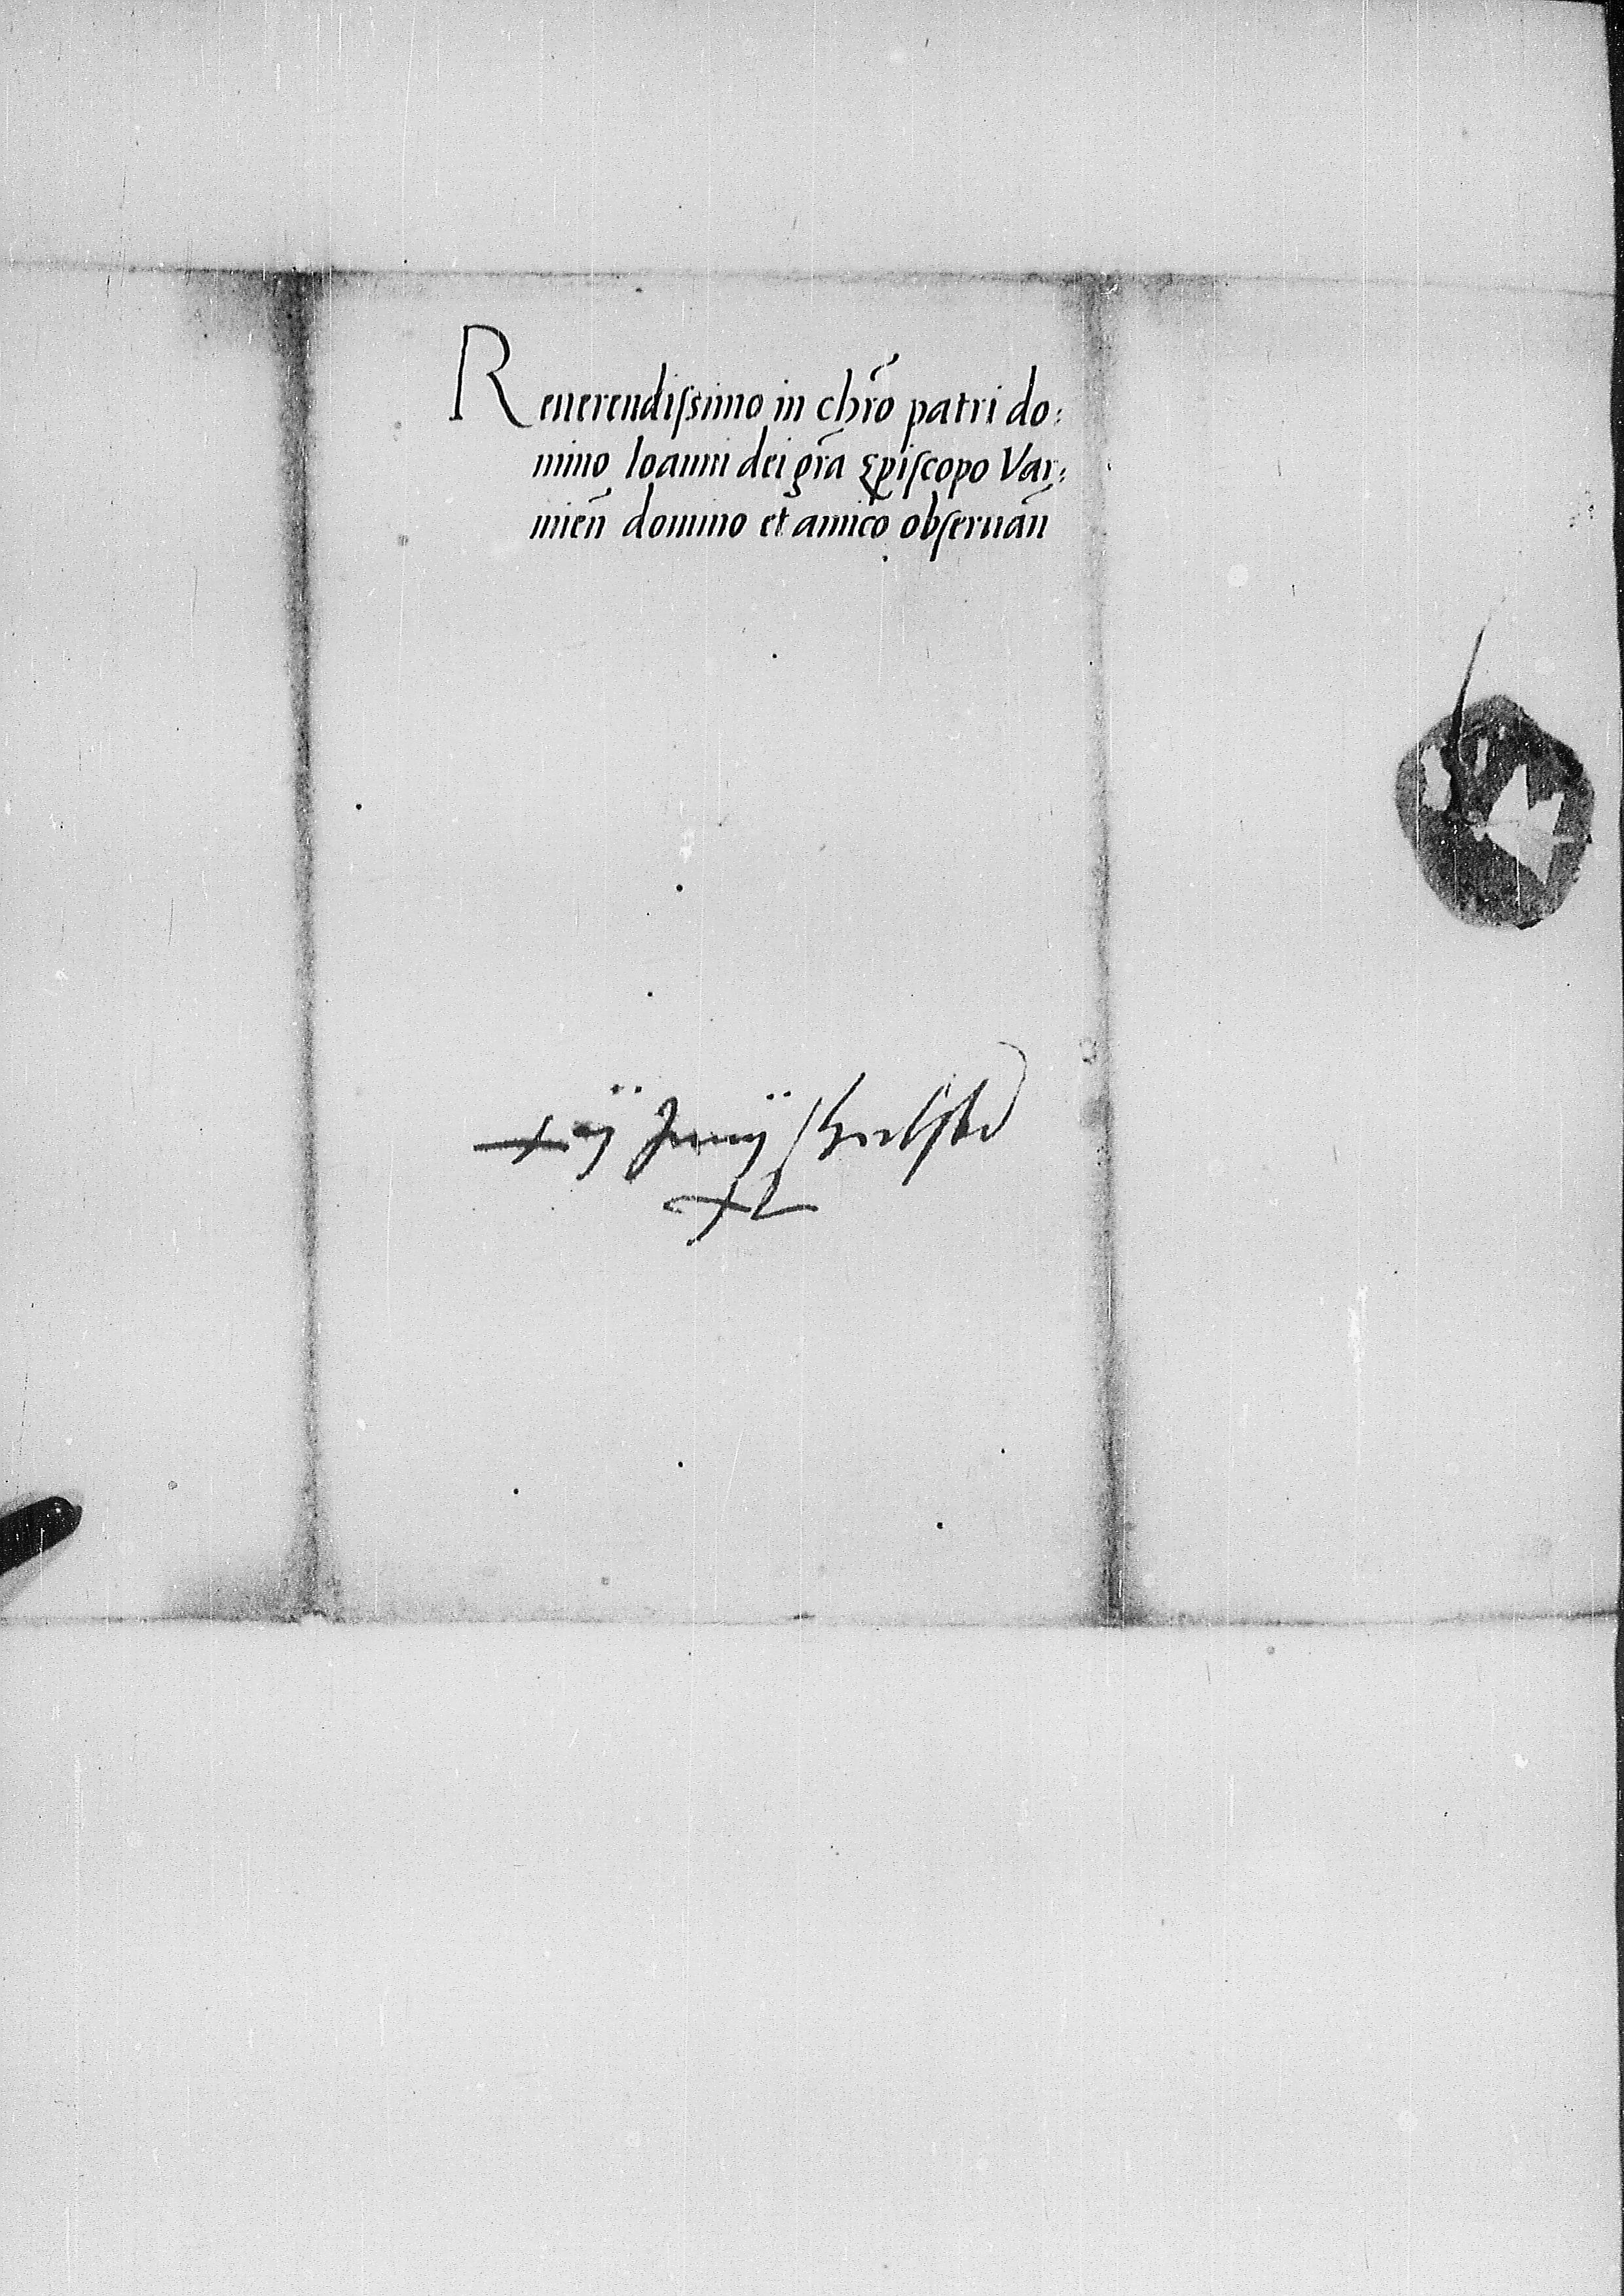 Reuerendissimo in chr̄o patri do:
mino Ioanni dei gr̄a Episcopo Var:
mień domino et amico obseruań
Junij
xl